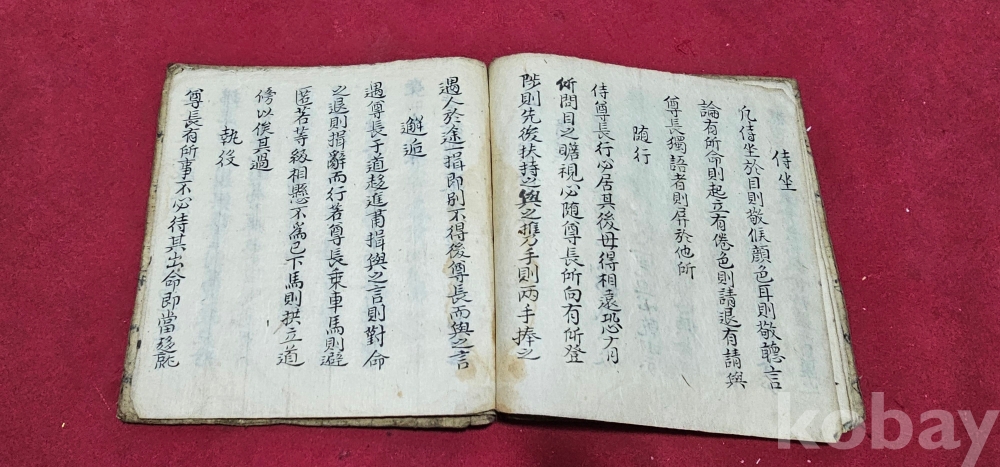 侍坐
凡侍坐於目則敬候顔色耳則敬聽言
論有所命則起立有倦色則請退有請與
尊長獨語者則屛於他所
随行
侍尊長行必居其後毋得相遠恐有
所問目之瞻視必随尊長所向有所登
陟則先後扶持之與之携手則兩手捧之
遇人於途一揖即別不得後尊長而與之言
邂逅
遇尊長于道趍進肅揖與之言則對命
之退則揖辭而行若尊長乘車馬則避
匿若等級相懸不爲己下馬則拱立道
傍以俟其過
執役
尊長有所事不必待其出命即當趍就
kobay